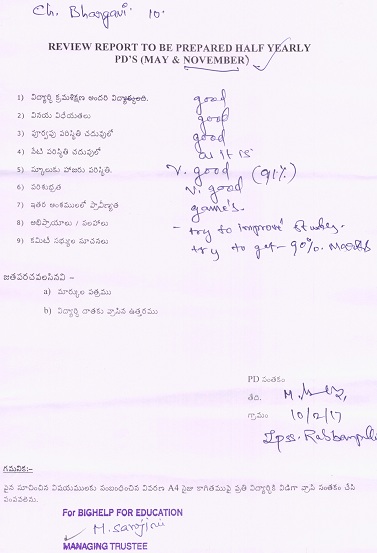 Ch. Bhargavi 10.
REVIEW REPORT TO BE PREPARED HALF YEARLY
PD'S (MAY & NOVEMBER)
1) విద్యార్థి క్రమశిక్షణ అందరి విద్యార్థులది. good
2) వినయ విధేయతలు good
3) పూర్వపు పరిస్థితి చదువులో good
4) నేటి పరిస్థితి చదువులో as it is
5) స్కూలుకు హాజరు పరిస్థితి. V. good (91%)
6) పరిశుభ్రత V. good
7) ఇతర అంశములలో ప్రావీణ్యత game's.
8) అభిప్రాయాలు / సలహాలు - try to improve studies.
9) కమిటీ సభ్యుల సూచనలు try to get - 90%. Marks
జతపరచవలసినవి :-
a) మార్కుల పత్రము
b) విద్యార్థి దాతకు వ్రాసిన ఉత్తరము
PD సంతకం
తేది. 10/2/17
గ్రామం
గమనిక:-
పైన సూచించిన విషయములకు సంబంధించిన వివరణ A4 సైజు కాగితముపై ప్రతి విద్యార్థికి విడిగా వ్రాసి సంతకం చేసి
పంపవలెను.
For BIGHELP FOR EDUCATION
M. Sarojini
MANAGING TRUSTEE